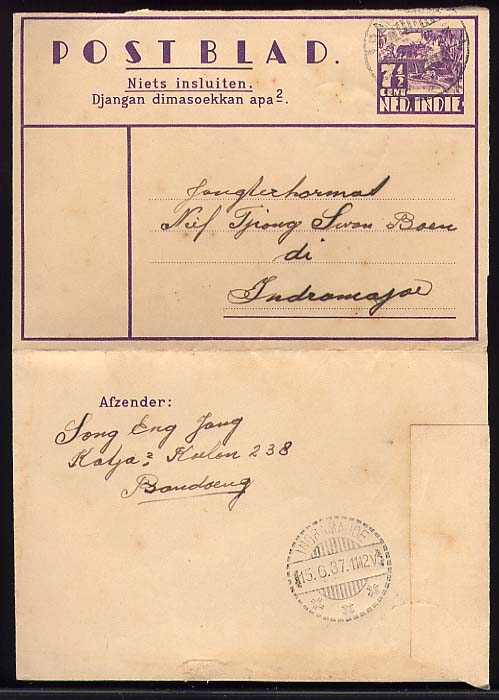 POSTBLAD.
Niets insluiten.
Djangan dimasoekkan apa2.
7½
CENT
NED. INDIE
Jangterhormat
Njf Tjiong Swan Boen
di
Indramajoe
Afzender:
Song Eng Jang
Katja2 Koelon 238
Bandoeng
INDRAMAJOE
15.6.37.11-12V